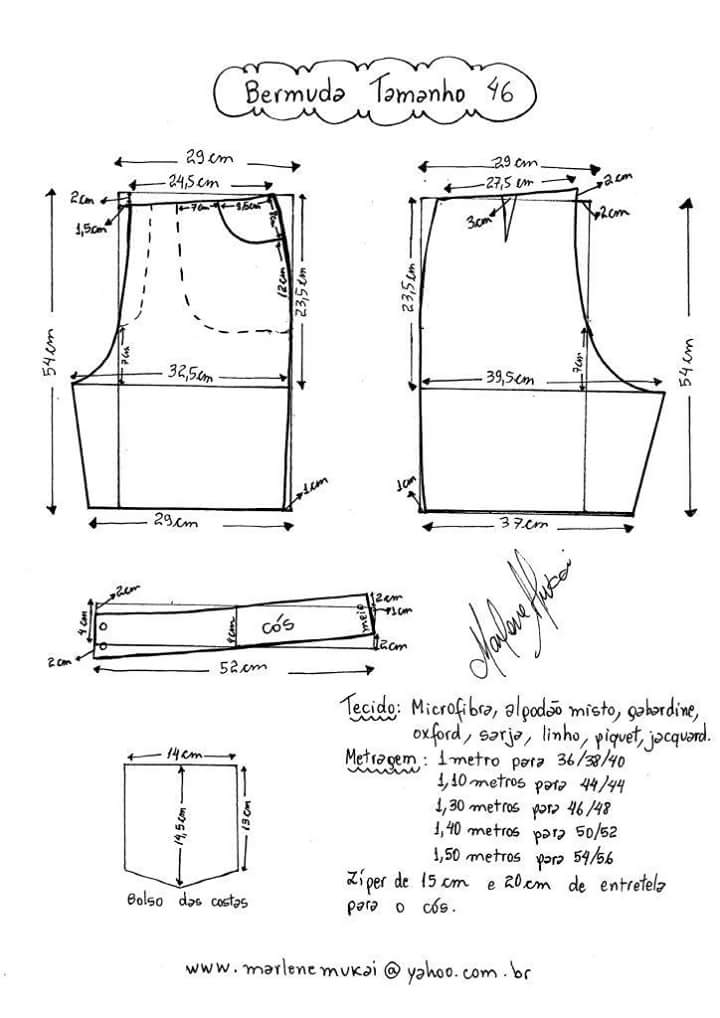 Bermuda Tamanho 46
29 cm
24,5cm
2cm
1,5cm
7cm
9,5cm
12cm
23,5cm
54cm
7cm
32,5cm
1cm
29cm
29cm
27,5cm
2cm
2cm
3cm
23,5cm
7cm
39,5cm
54cm
1cm
37cm
2cm
4cm
2cm
cós
meio
2cm
1cm
2cm
52cm
Marlene Mukai
Tecido: Microfibra, algodão misto, gabardine,
oxford, sarja, linho, piquet, jacquard.
Metragem: 1 metro para 36/38/40
1,10 metros para 44/44
1,30 metros para 46/48
1,40 metros para 50/52
1,50 metros para 54/56
Zíper de 15 cm e 20 cm de entretela
para o cós.
14cm
14,5cm
13cm
Bolso das costas
www.marlenemukai@yahoo.com.br